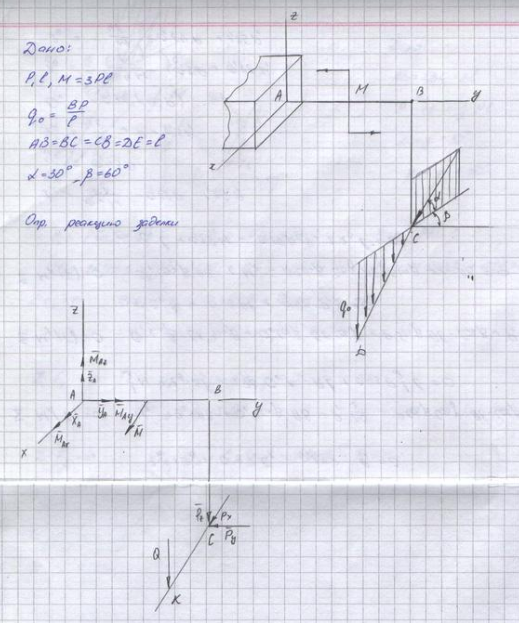 Дано:
P, l, M = 3Pl
q₀ = 8P/l
AB=BC=CD=DE=l
α=30° β=60°
Опр. реакцию заделки
z
A
M
B
y
x
α
β
C
q₀
D
z
M̄Az
z̄A
A
B
y
ȳA
M̄Ay
x̄A
M̄
x
M̄Ax
P̄z
Px
C
P̄y
Q
K